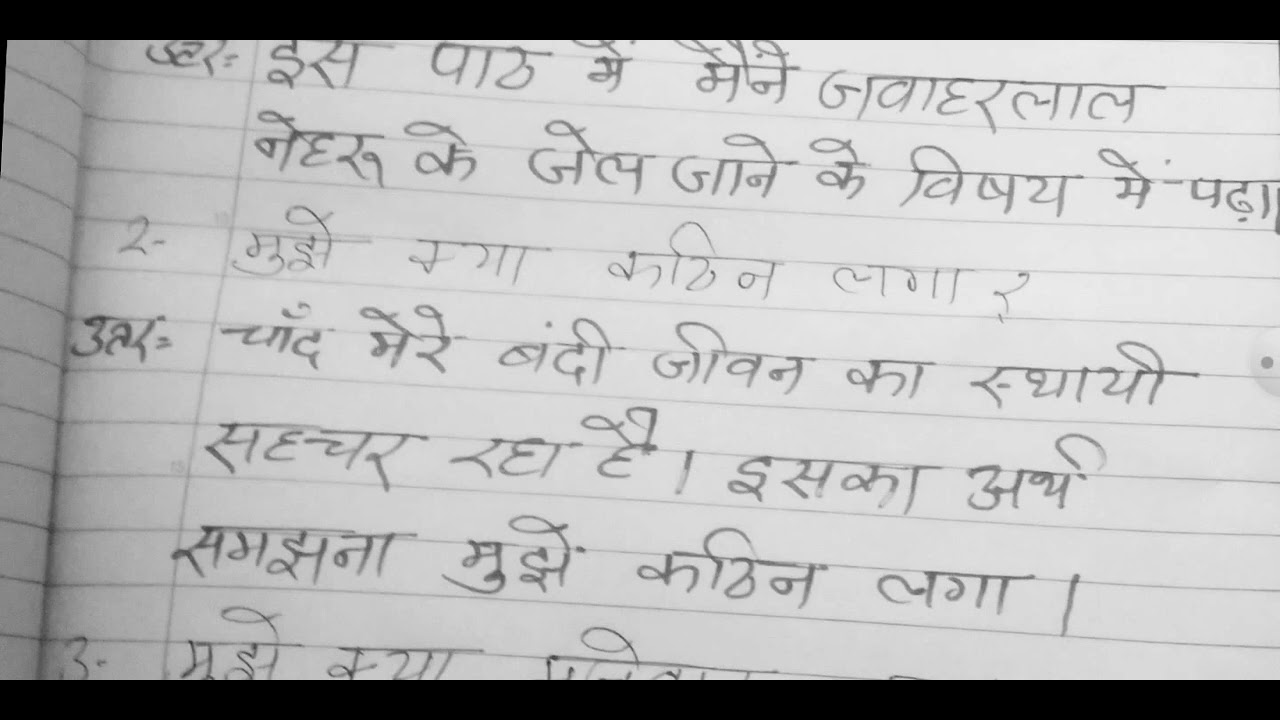 उत्तर= इस पाठ में मैंने जवाहरलाल
नेहरू के जेल जाने के विषय में पढ़ा।
2- मुझे क्या कठिन लगा ?
उत्तर= चाँद मेरे बंदी जीवन का स्थायी
सहचर रहा है। इसका अर्थ
समझना मुझें कठिन लगा ।
3- मुझे क्या